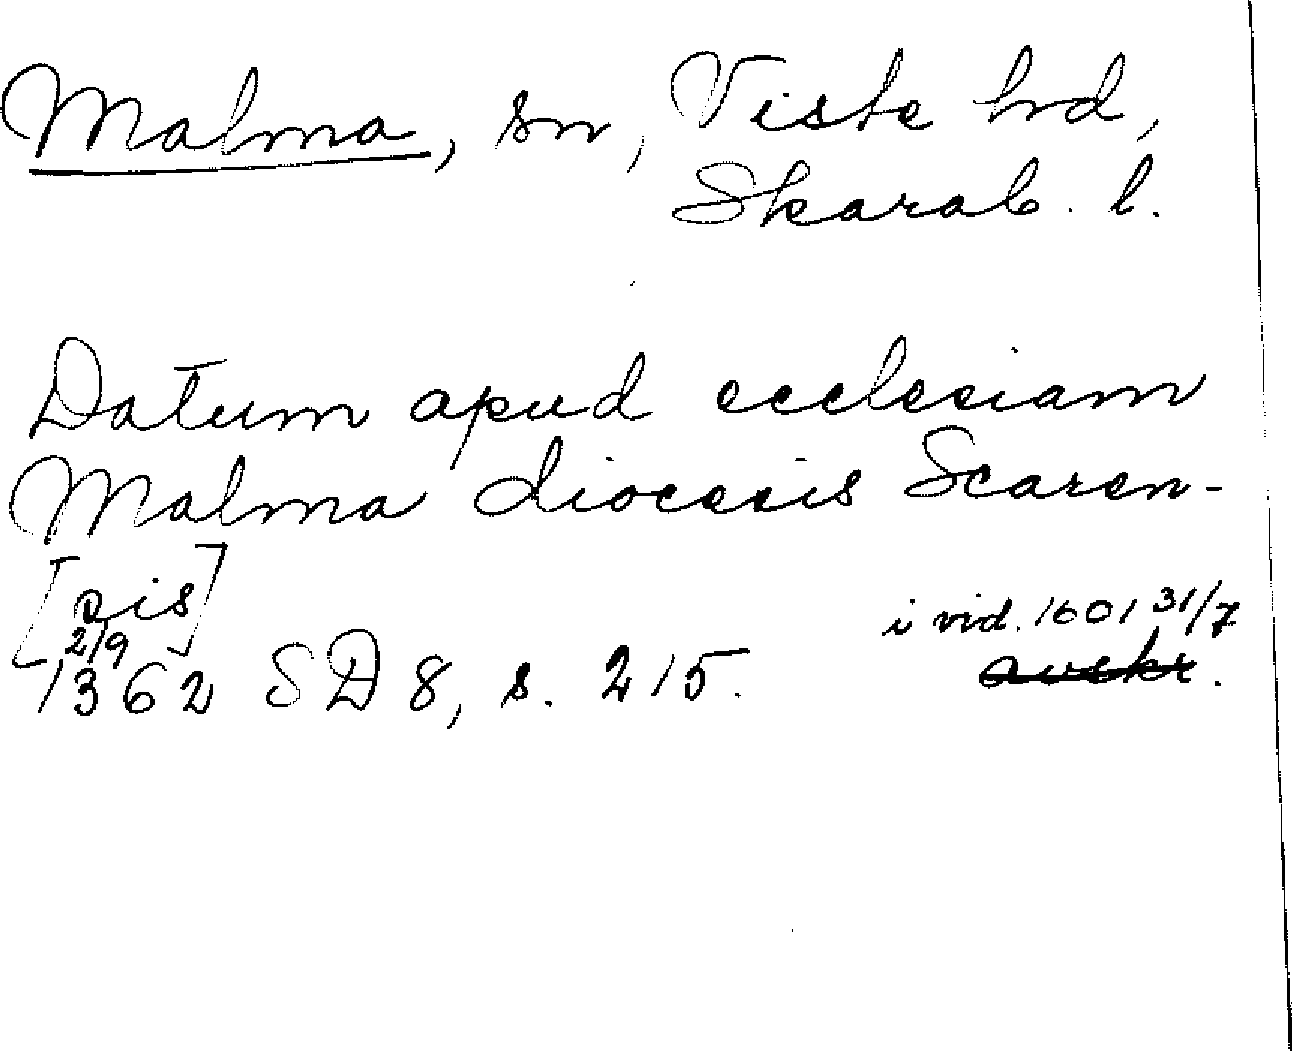 Malma, sn, Viste hd,
Skarab. l.
Datum apud ecclesiam
Malma diocesis Scaren-
[sis]
2/9
1362 SD 8, s. 215.
i vid. 1601 31/7
avskr.